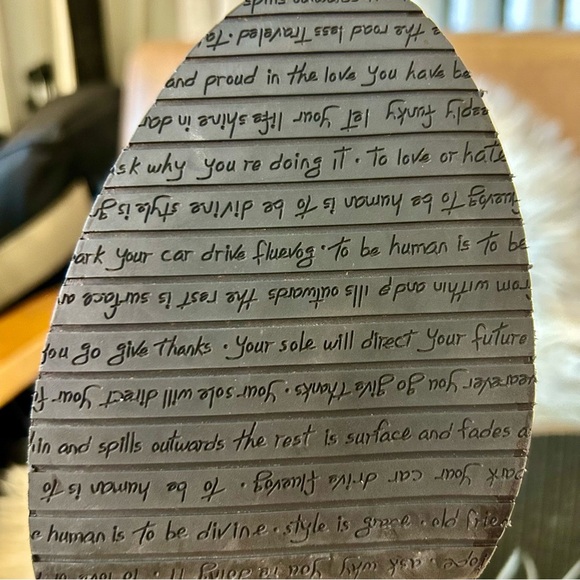 the road less traveled. To
and proud in the love you have be
eeply funky let your life shine in dar
sk why you're doing it. To love or hate
fluevog To be human is To be divine style is gr
ark your car drive fluevog. To be human is To be
rom within and spills outwards the rest is surface an
you go give Thanks. your sole will direct your future
wearever you go give Thanks. your sole will direct your f
in and spills outwards the rest is surface and fades a
park your car drive fluevog. To be human is To
e human is To be divine. style is grace. old frien
ask why you're doing it. To love or